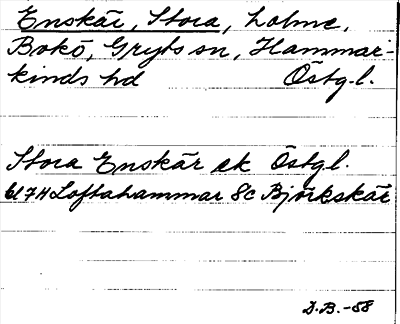 Enskär, Stora, holme,
Bokö, Gryts sn, Hammar-
kinds hd Östg.l.
Stora Enskär ek Östgl.
617H Loftahammar 8c Björkskär
D.B.-58